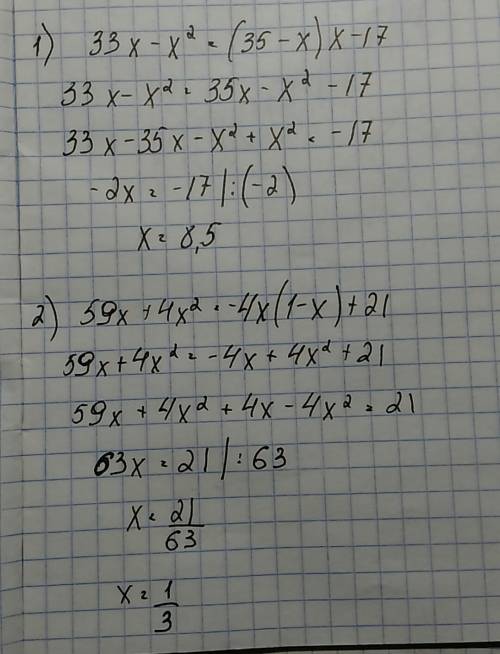 1) 33x - x² = (35 - x)x - 17
33x - x² = 35x - x² - 17
33x - 35x - x² + x² = -17
-2x = -17 | : (-2)
x = 8,5
2) 59x + 4x² = -4x(1 - x) + 21
59x + 4x² = -4x + 4x² + 21
59x + 4x² + 4x - 4x² = 21
63x = 21 | : 63
x = 21/63
x = 1/3